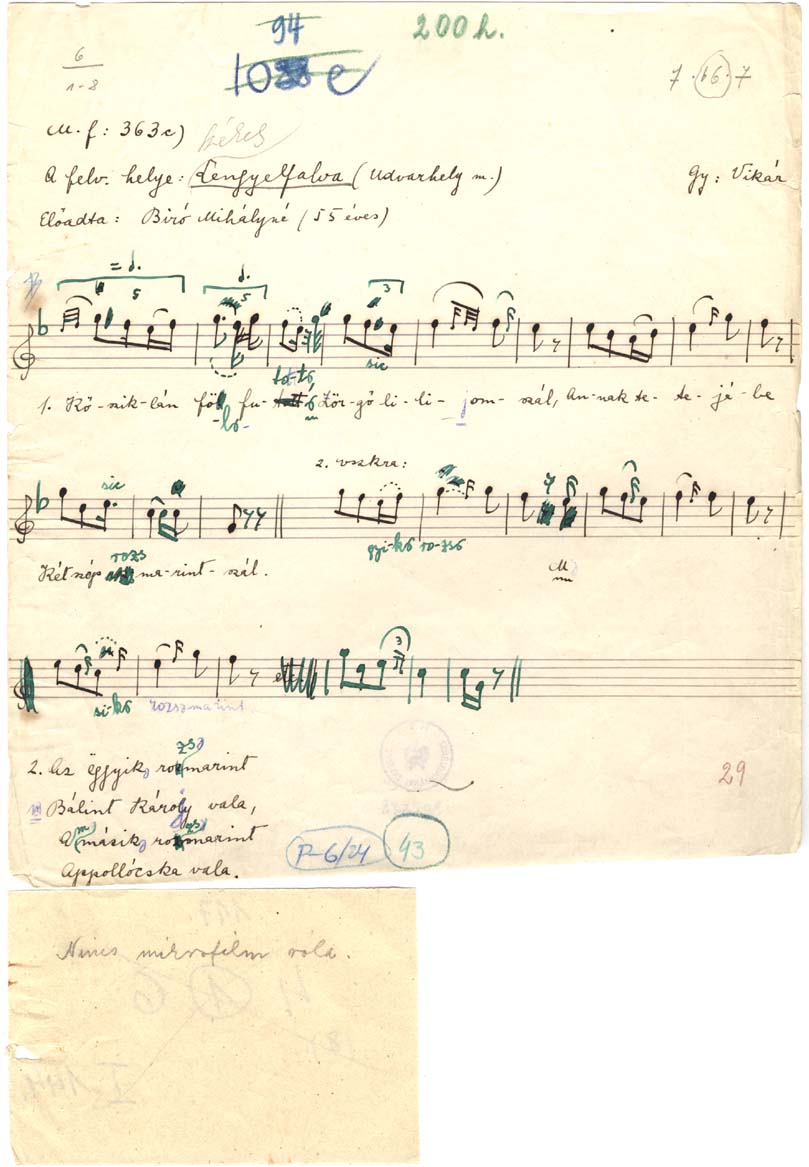 94
200 h.
6
1-8
7 · 16 · 7
M. f: 363c)
A felv. helye: Lengyelfalva (Udvarhely m.)
Gy: Vikár
Előadta: Biró Mihályné (55 éves)
= d.
5
d.
5
3
sic
1. Kő-szik-lán föl fu- Zör-gő li-li-jom-szál, An-nak te-te-jé-be
sic
2. vszkra:
gyi-kő ro-zsö
Két szép rozs ma-rint-szál.
M
3
si-kő rozsmarint
2. Az ëggyik rozmarint
Bálint Károly vala,
A másik rozmarint
Appollócska vala.
29
P-6/24
43
Nincs mikrofilm róla.